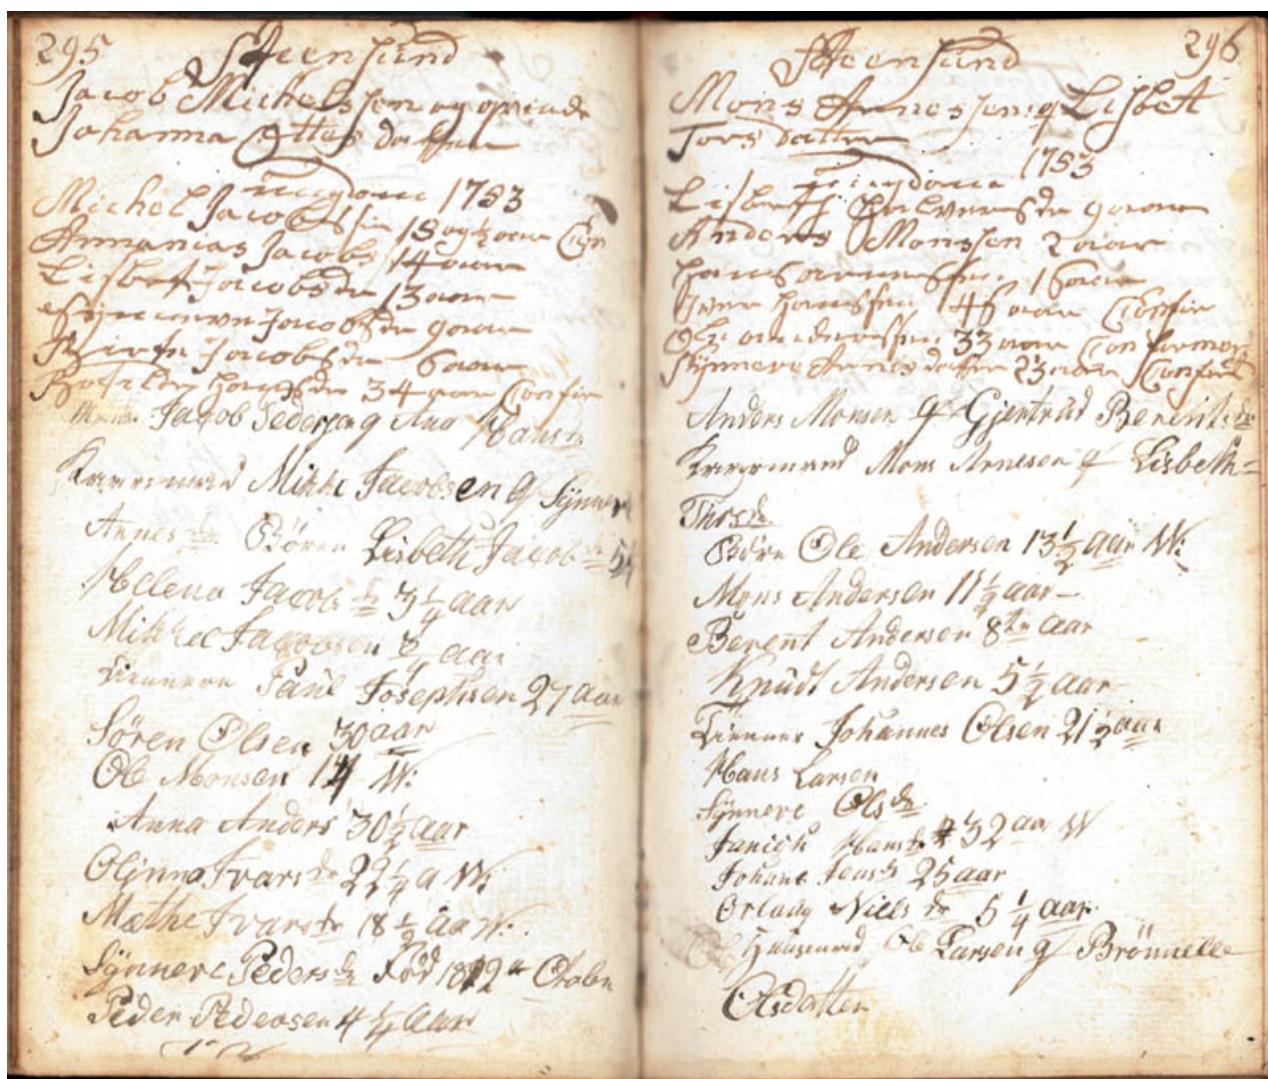 295
Steensund
Jacob Michelssen og
Johanna Ottes datter
1753
Michel Jacobssen 18 og ½ aar Con
Ammanias Jacobs 14 aar
Lisbet Jacobsdr 13 aar
Jacobsdr 9 aar
Jacobsdr 6 aar
34 aar Confir
Jacob Peders og Ana Hansdr
Kaarmand Mikkel Jacobsen og Synnere
Annesdr Børn Lisbeth Jacobsdr
Helena Jacobsdr 3 ¼ aar
Mikkel Jacobsen ¾ aar
Tiennere Paul Josephsen 27 aar
Søren Olsen 30 aar
Ole Monsen 14 W:
Anna Anders 30 ½ aar
Olinna Ivarsdr 22 ¼ a W:
Mæthe Ivarsdr 18 ½ aa W:
Synnere Pedersdr Fød 1812 Octobr
Peder Pedersen 4 ¼ aar
296
Steensund
Mons Arnessen og Lisbet
Tors datter
1753
Lisbeth Halvorsdr 9 aar
Anders Monssen 2 aar
Hans 16 aar
Iver Hanssen 46 aar Confir
Ole Anderssen 33 aar Confirmer
Synnere Arnes datter 23 aar Confir
Anders Monsen og Gjertrud Berentsdr
Kaarmand Mons Arnesen og Lisbeth
Thorsdr
Børn Ole Andersen 13 ½ aar W:
Mons Andersen 11 ½ aar
Berent Andersen 8 aar
Knudt Andersen 5 ½ aar
Tienner Johannes Olsen 21 ½ aar
Hans Larsen
Synnere Olsdr
Janich Hansdr 32 aar W
Johane Jensdr 25 aar
Orlaug Nielsdr 5 ¼ aar
Huusmand Ole Larsen og Brønnelle
Olsdatter